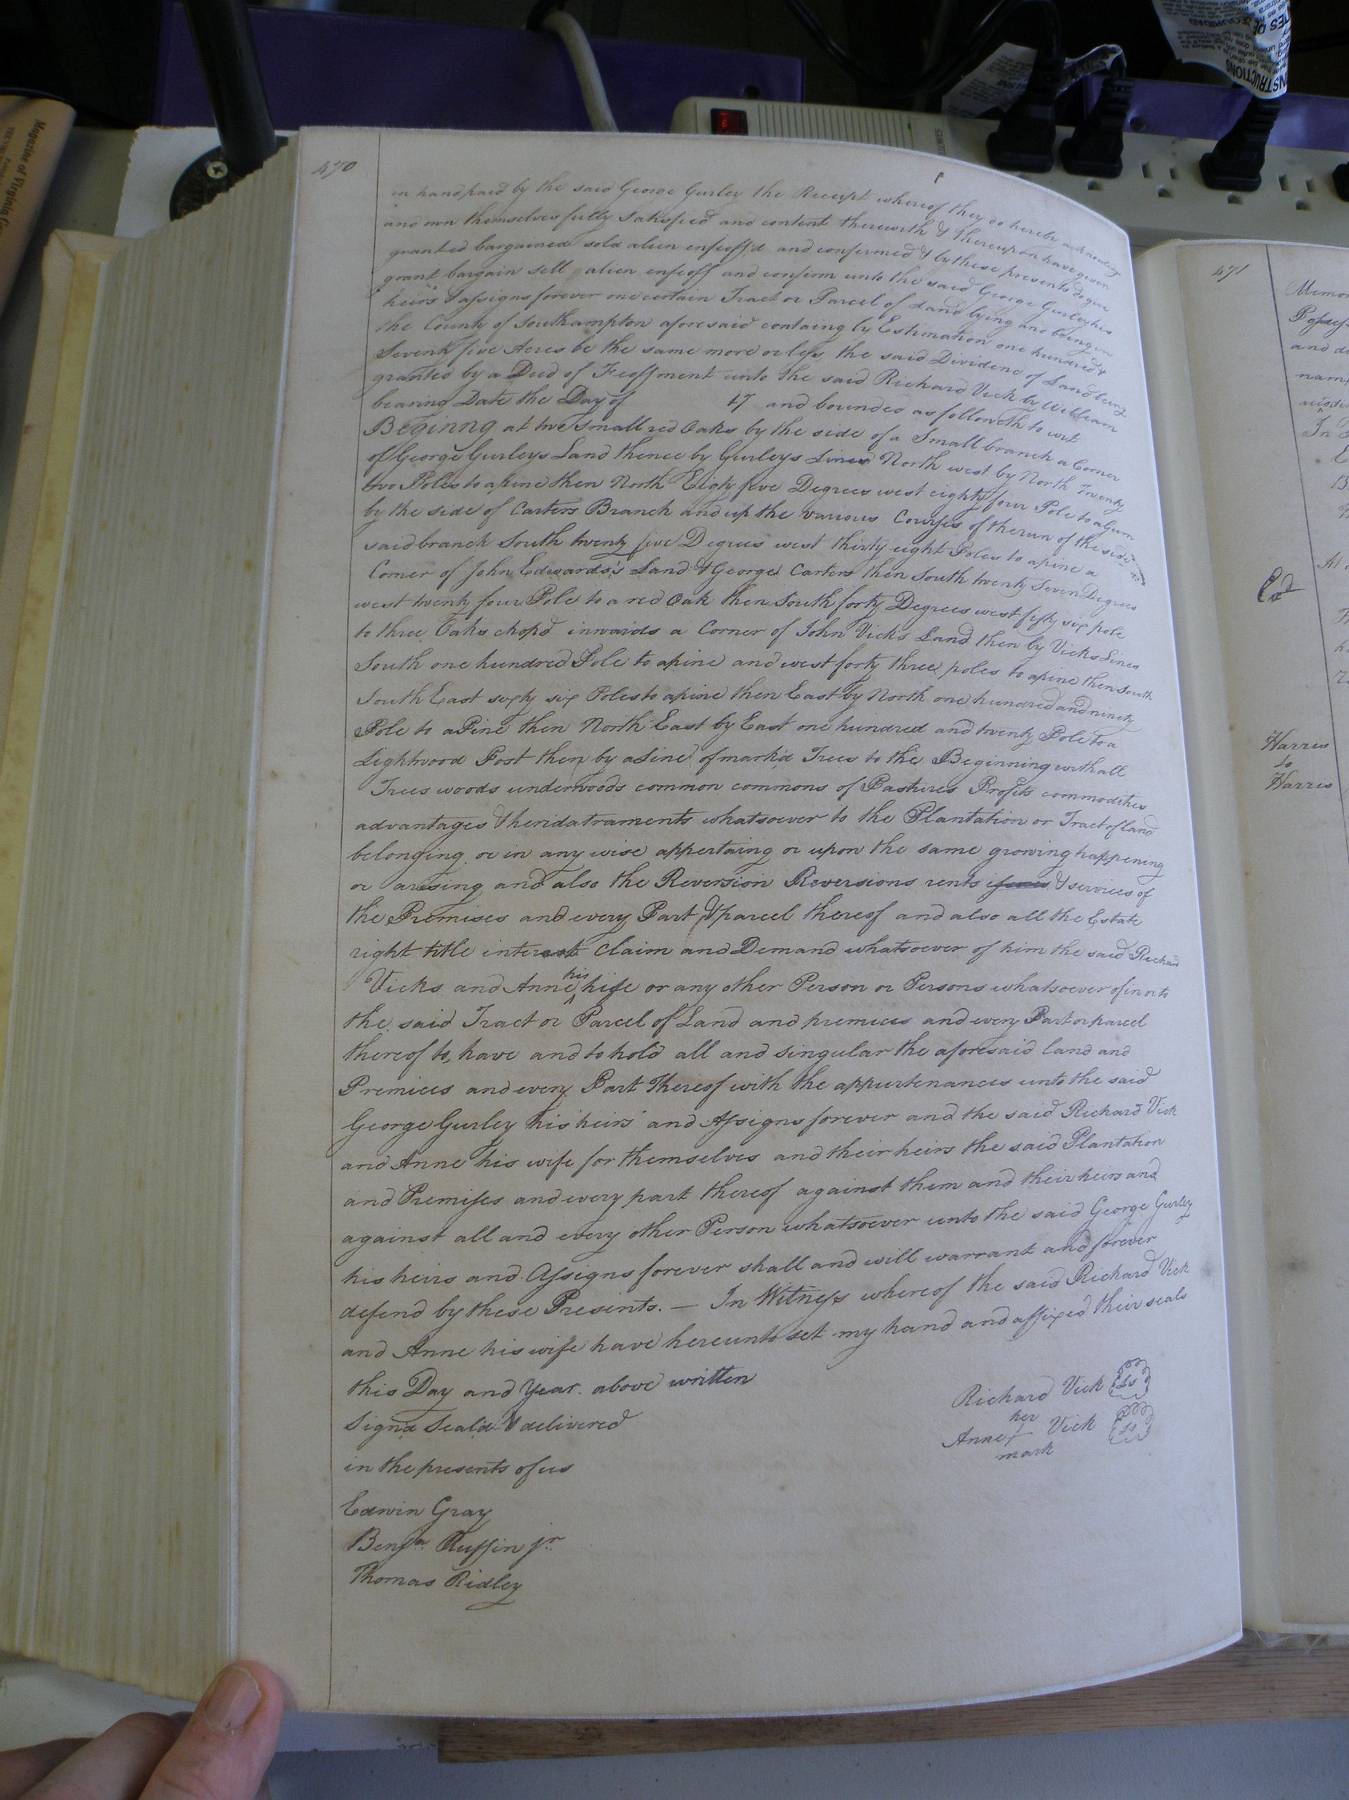 470
in hand paid by the said George Gurley the Receipt whereof they do hereby acknowledge
and own themselves fully satisfied and content therewith & thereupon have given
granted bargained sold alien enfeoff'd and confirmed & by these presents do give
grant bargain sell alien enfeoff and confirm unto the said George Gurley his
heirs & assigns forever one certain Tract or Parcel of Land lying and being in
the County of Southampton aforesaid containg by Estimation one hundred &
Seventy five Acres be the same more or less the said Dividend of Land being
granted by a Deed of Feoffment unto the said Richard Vick by William
bearing Date the Day of 17 and bounded as followeth to wit
Beginng at two Small red Oaks by the side of a Small branch a Corner
of George Gurleys Land thence by Gurleys Lines North west by North Twenty
two Poles to a pine then North Eighty five Degrees west eighty four Pole to a Gum
by the side of Carters Branch and up the various Courses of the run of the side
said branch South twenty five Degrees west thirty eight Poles to a pine a
Corner of John Edwards's Land & George Carters then South twenty Seven Degrees
west twenty four Pole to a red Oak then South forty Degrees west fifty six pole
to three Oaks chop'd inwards a Corner of John Vicks Land then by Vicks Lines
South one hundred Pole to a pine and west forty three poles to a pine then South
South East sixty six Poles to a pine then East by North one hundred and ninety
Pole to a Pine then North East by East one hundred and twenty Pole to a
Lightwood Post then by a Line of mark'd Trees to the Beginning with all
Trees woods underwoods common commons of Pastures Profits commodities
advantages & heridatraments whatsoever to the Plantation or Tract of land
belonging or in any wise appertaing or upon the same growing happening
or arising and also the Reversion Reversions rents issues & services of
the Premises and every Part & parcel thereof and also all the Estate
right title interest claim and Demand whatsoever of him the said Richard
Vicks and Anne his wife or any other Person or Persons whatsoever of in or to
the said Tract or Parcel of Land and premices and every Part or parcel
thereof to have and to hold all and singular the aforesaid land and
Premices and every Part thereof with the appurtenances unto the said
George Gurley his heirs and Assigns forever and the said Richard Vick
and Anne his wife for themselves and their heirs the said Plantation
and Premises and every part thereof against them and their heirs and
against all and every other Person whatsoever unto the said George Gurley
his heirs and Assigns forever shall and will warrant and forever
defend by these Presents. — In Witness whereof the said Richard Vick
and Anne his wife have hereunto set my hand and affixed their seals
this Day and Year above written
Richard Vick Ls
Sign'd Seal'd & delivered
her
Anne Vick Ls
mark
in the presents of us
Edwin Gray
Benja Ruffin jr
Thomas Ridley
471
Memor
Posses
and de
In
Harris
to
Harris
Magazine of Virginia
INSTRUCTIONS